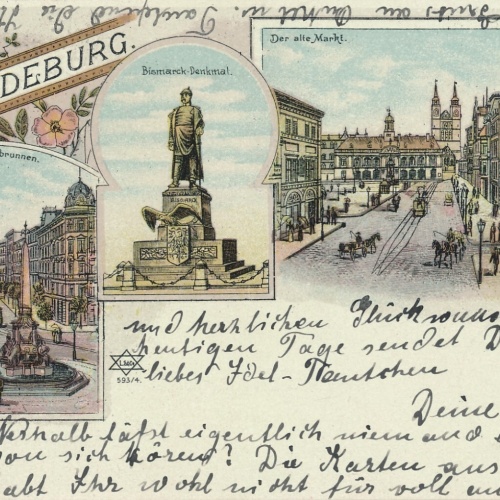 DEBURG.
Bismarck-Denkmal.
Der alte Markt.
brunnen.
BISMARCK
und herzlichen Glückwuns
heutigen Tage sendet D
liebes Idel-Tantchen
593/4.
Deine
Weshalb läßt eigentlich niemand
von sich hören? Die Karten aus
habt Ihr wohl nicht für voll an